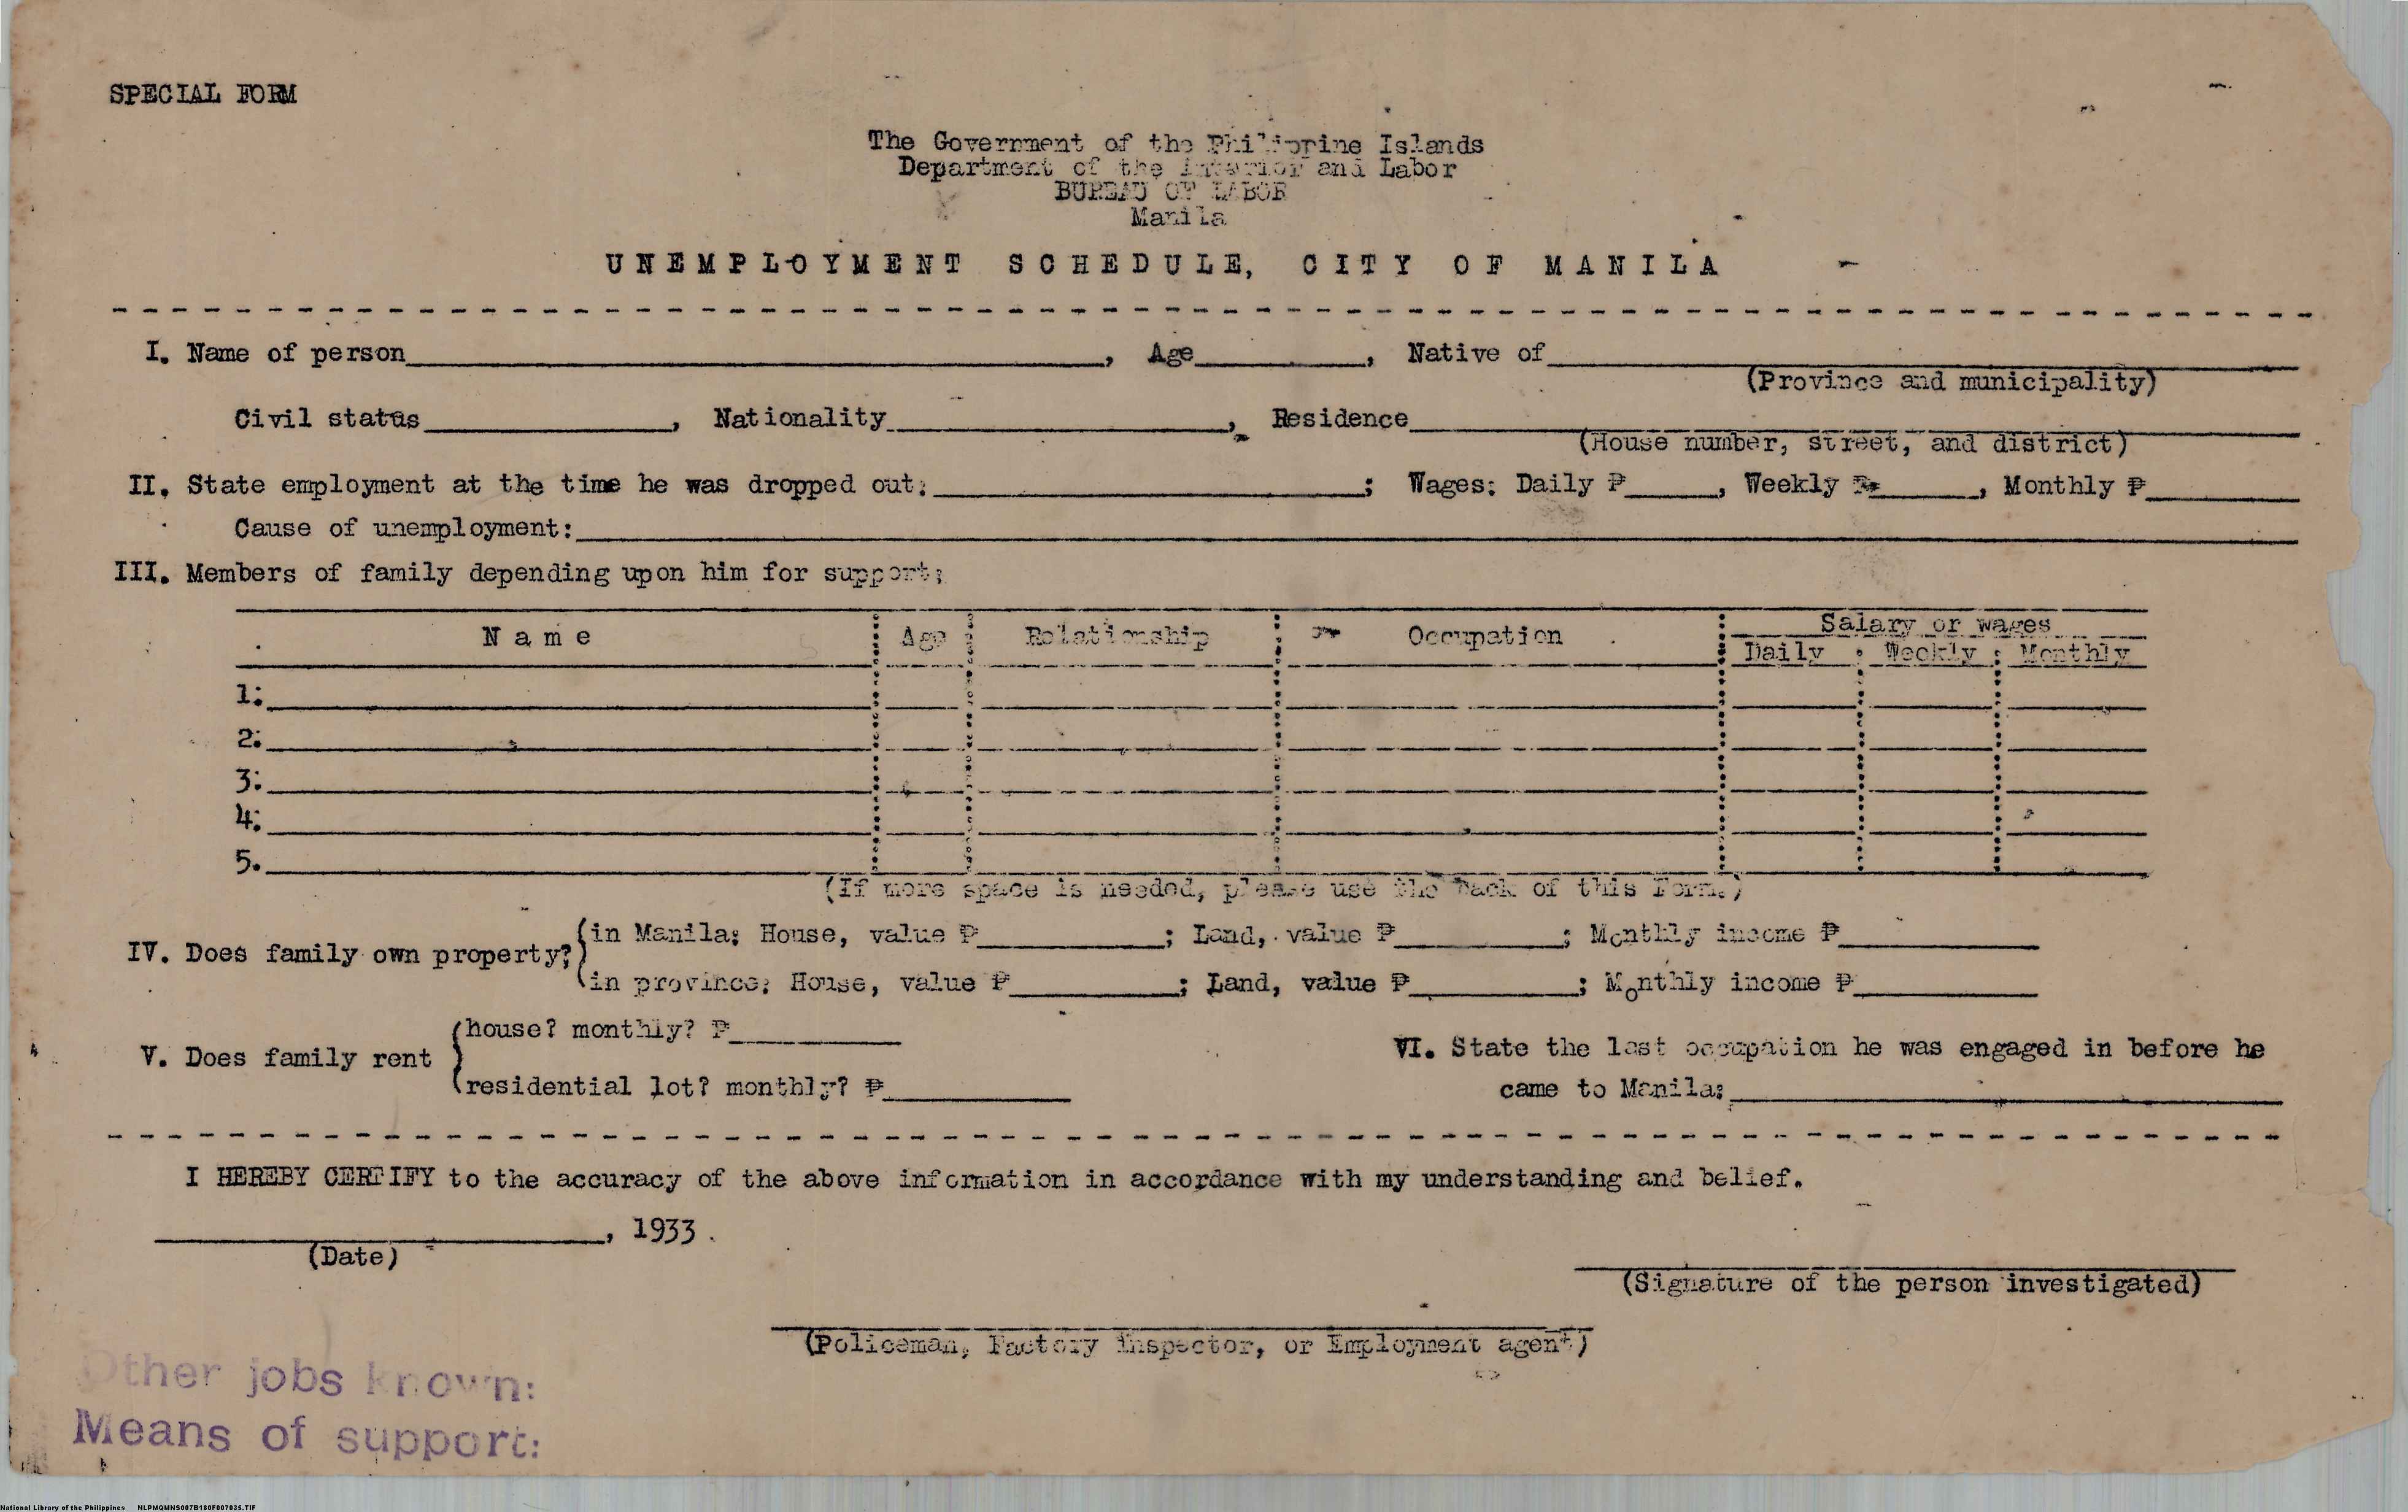 SPECIAL FORM
The Government of the Philippine Islands
Department of the Interior and Labor
BUREAU OF LABOR
Manila
UNEMPLOYMENT SCHEDULE, CITY OF MANILA
I. Name of person____________, Age______, Native of____________
(Province and municipality)
Civil status________, Nationality____________, Residence____________
(House number, street, and district)
II. State employment at the time he was dropped out:____________; Wages: Daily ₱____, Weekly ₱____, Monthly ₱____
Cause of unemployment:____________
III. Members of family depending upon him for support:
Name Age Relationship Occupation Salary or wages
Daily : Weekly : Monthly
1:
2:
3:
4:
5.
(If more space is needed, please use the back of this Form.)
(in Manila: House, value ₱________; Land, value ₱________; Monthly income ₱________
IV. Does family own property?
(in province: House, value ₱________; Land, value ₱________; Monthly income ₱________
(house? monthly? ₱________
V. Does family rent
(residential lot? monthly? ₱________
VI. State the last occupation he was engaged in before he
came to Manila:____________
I HEREBY CERTIFY to the accuracy of the above information in accordance with my understanding and belief.
____________, 1933.
(Date)
(Signature of the person investigated)
(Policeman, Factory inspector, or Employment agent)
Other jobs known:
Means of support:
National Library of the Philippines NLPMQMNS007B180F007035.TIF